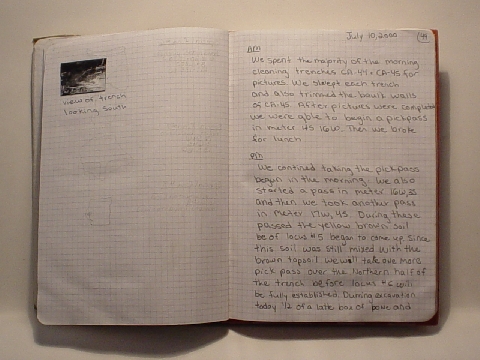 view of trench
looking south
July 10, 2000
44
AM
We spent the majority of the morning
cleaning trenches CA-44 + CA-45 for
pictures. We swept each trench
and also trimmed the baulk walls
of CA-45. After pictures were completed
we were able to begin a pickpass
in meter 4S 16W. Then we broke
for lunch.
PM
We contined taking the pickpass
begun in the morning. We also
started a pass in meter 16W,3S
and then we took another pass
in meter 17W, 4S. During these
passed the yellow brown soil
of locus #5 began to come up. Since
this soil was still mixed with the
brown topsoil we will take one more
pick pass over the Northern half of
the trench before locus #5 will
be fully established. During excavation
today 1/2 of a late box of bone and